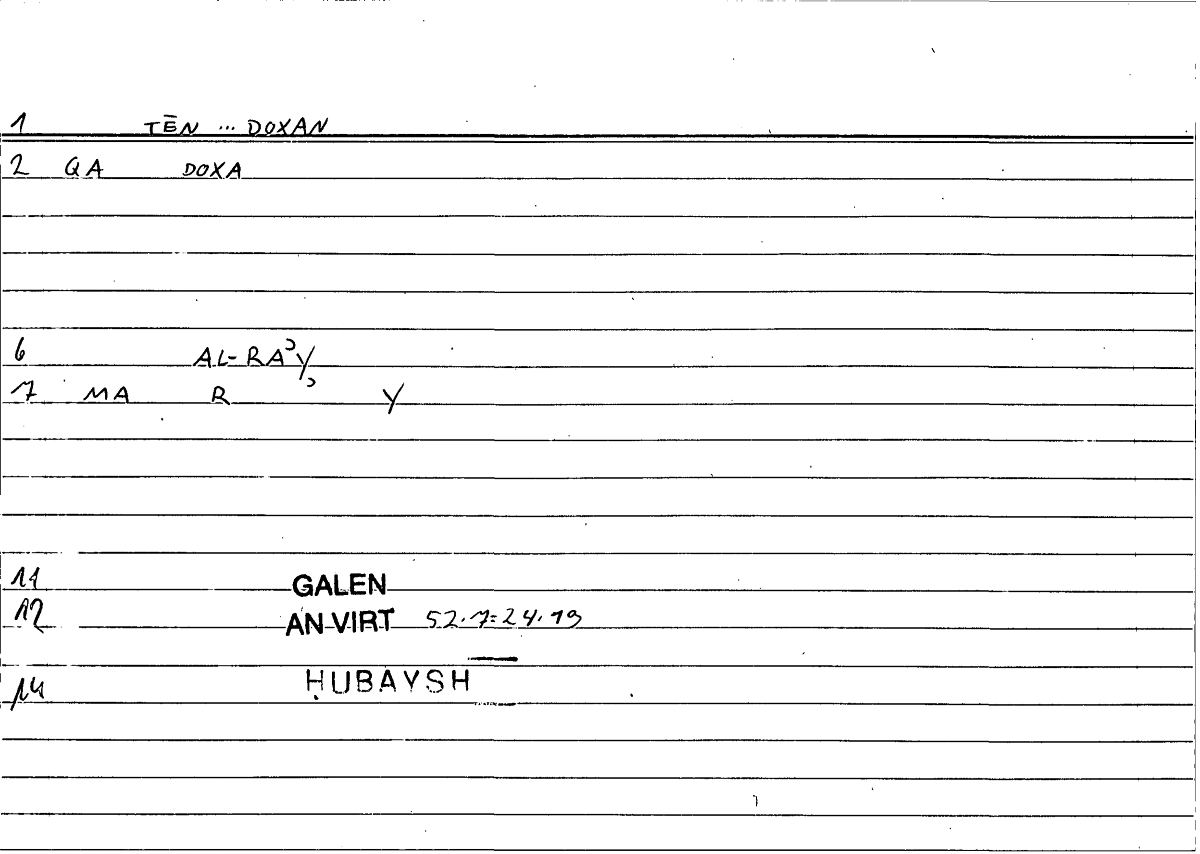 1 TĒN ... DOXAN
2 QA DOXA
6 AL-RAʾY
7 MA R Y
11 GALEN
12 AN VIRT 52.7=24.19
14 ḤUBAYSH